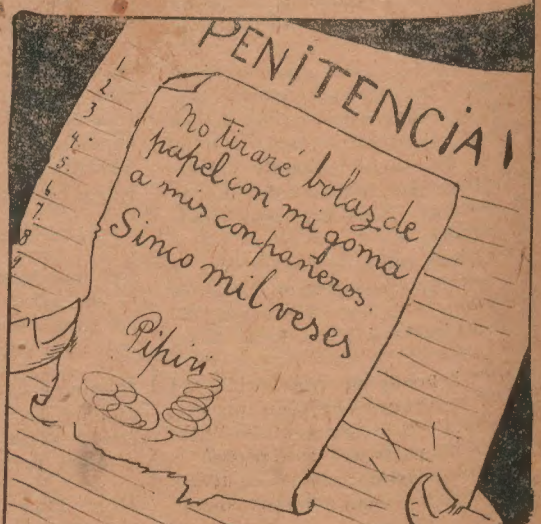 PENITENCIA!
1.
2.
3
4.
5.
6.
7.
8
9
No tiraré bolaz de
papel con mi goma
a mis conpañeros.
Sinco mil veses
Pipiri